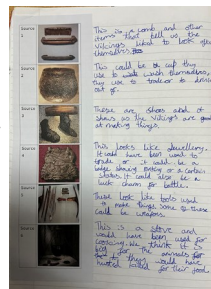 Source
1
This is a comb and other
items that tell us the
vikings liked to look after
themselves
Source
2
This could be a cup they
use to wash themselves,
they use to trade or to drink
out of.
Source
3
These are shoes and it
shows us the vikings are good
at making things.
Source
4
This looks like Jewellery.
It could have been used to
trade or it could be a
badge showing or a certain
status it could also be a
luck charm for battle.
Source
These look like tools used
to make things some to these
could be weapons.
Source
This is a stove and
would have been used for
cooking. We think it is
for the animals
they would have
hunted killed for their food